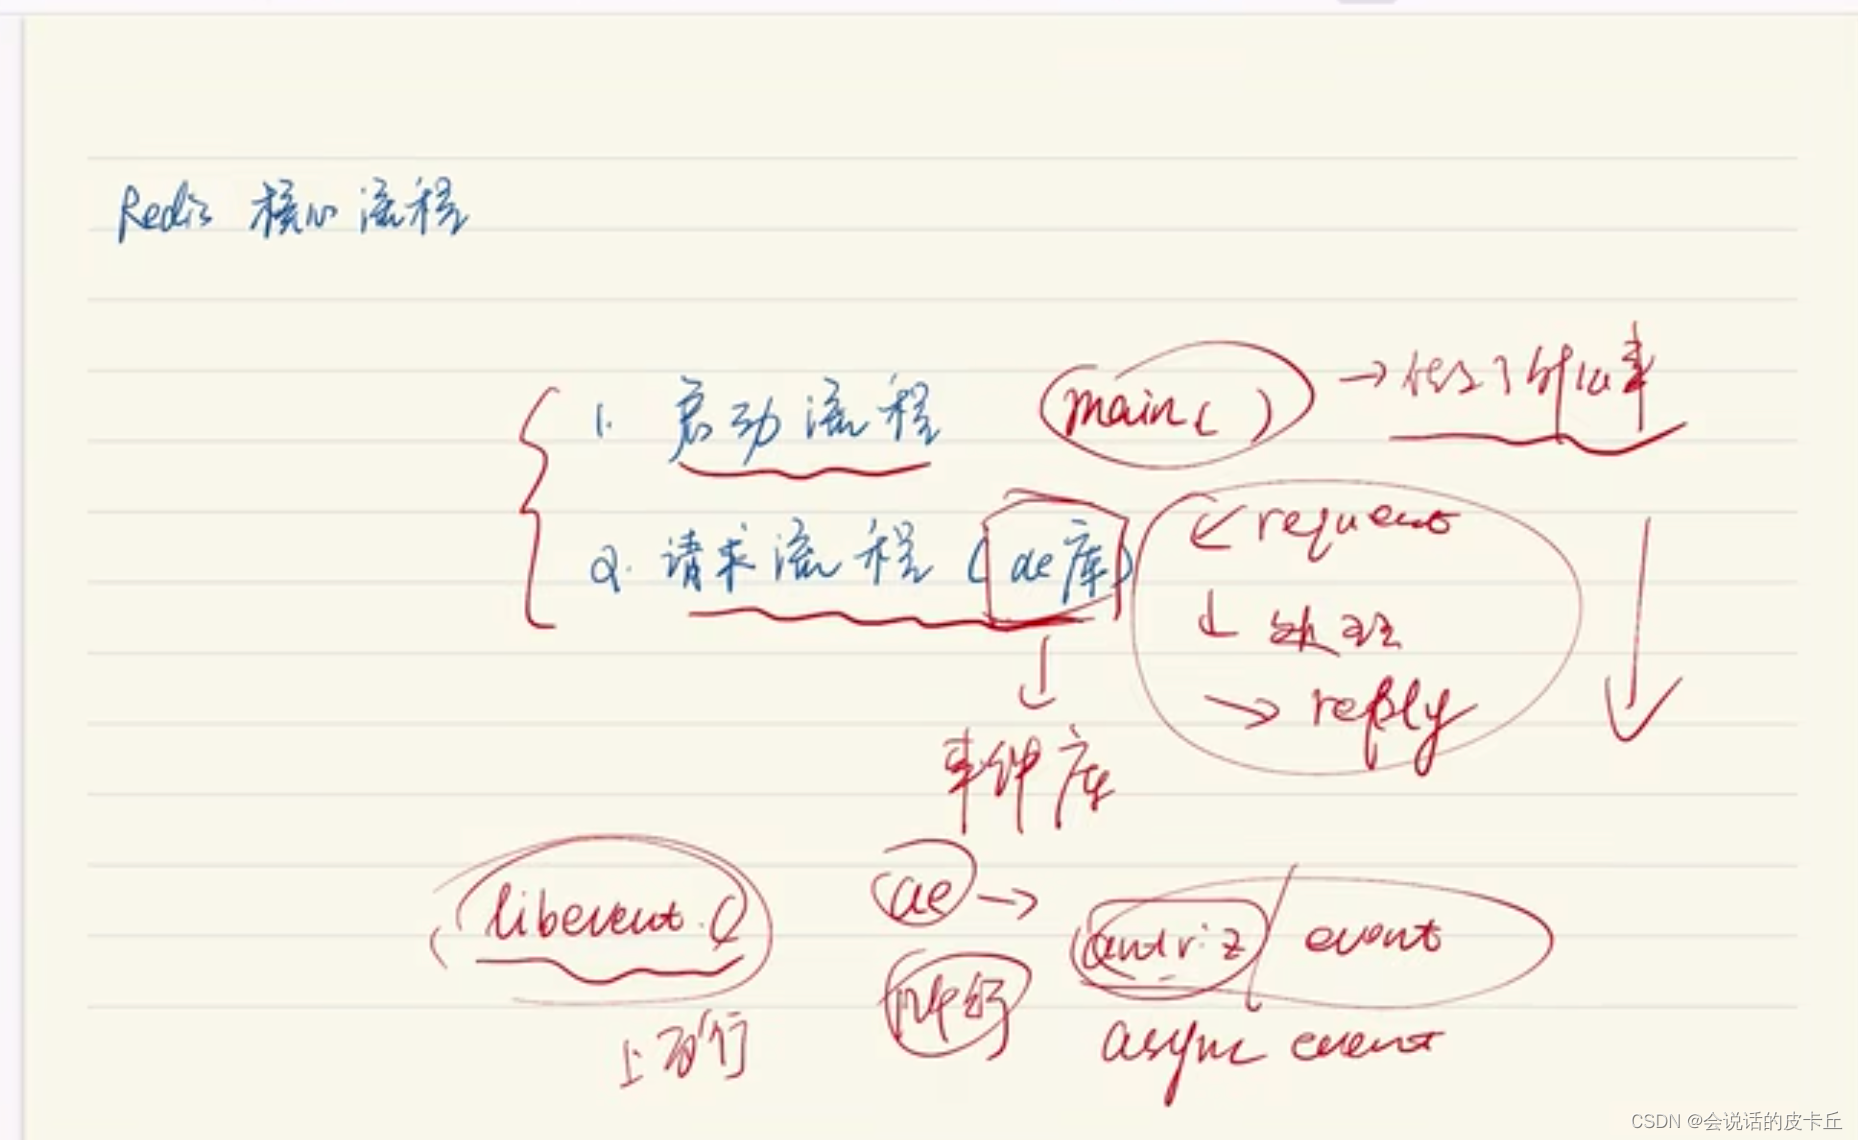 Redis 核心流程
1. 启动流程 main( ) → 做了什么事
2. 请求流程 (ae库)
← request
↓ 处理
→ reply
↓
事件库
libevent.c ae → antirez / event
上百行 async event
CSDN @会说话的皮卡丘